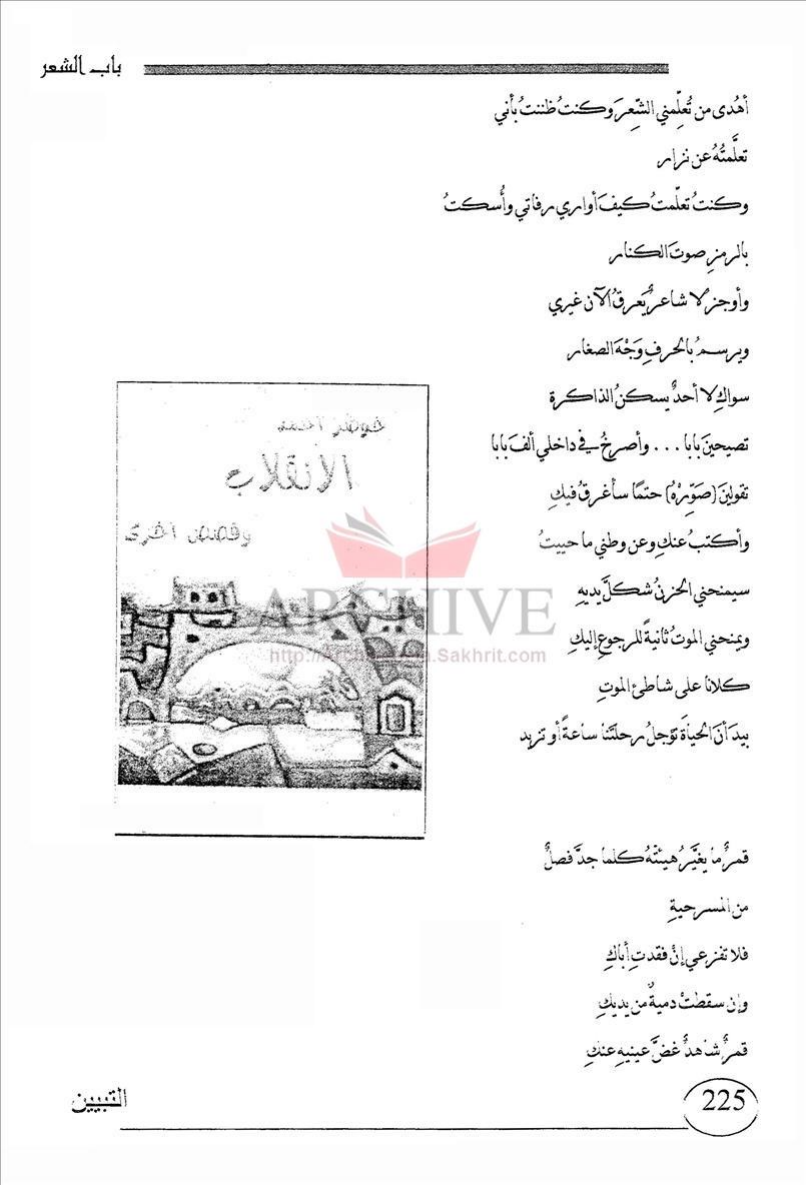 باب الشعر
أهُدى من تُعلِّمني الشِّعرَ وكنتُ ظننتُ بأني
تعلَّمتُهُ عن نزار
وكنتُ تعلّمتُ كيفَ أواري رفاتي وأُسكتُ
بالرمزِ صوتَ الكنار
وأوجز لا شاعرٌ يَعرقُ الآن غيري
ويرسمُ بالحرفِ وَجْهَ الصغار
سواكِ لا أحدٌ يسكنُ الذاكرة
تصيحينَ بابا ... وأصرخُ في داخلي ألفَ بابا
تقولينَ (صَوِّرْهُ) حتمًا سأغرقُ فيكِ
وأكتبُ عنكِ وعن وطني ما حييتُ
سيمنحني الحزنُ شكلَ يديهِ
ويمنحني الموتُ ثانيةً للرجوعِ إليكِ
كلانا على شاطئ الموتِ
بيدَ أنَ الحياةَ تؤجلُ رحلتَنا ساعةً أو تزيد
الانقلاب
وقصص أخرى
ARCHIVE
قمرٌ ما يغيَّرُ هيئتهُ كلما جدَّ فصلٌ
من المسرحيةِ
فلا تفزعي إنْ فقدتِ أباكِ
وإن سقطتْ دميةٌ من يديكِ
قمرٌ شاهدٌ غضَّ عينيهِ عنكِ
225
التبيين